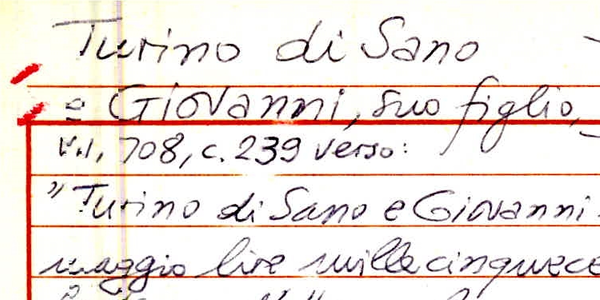 Turino di Sano
= Giovanni, suo figlio,
708, c. 239 verso:
"Turino di Sano e Giovanni
maggio lire mille cinquece